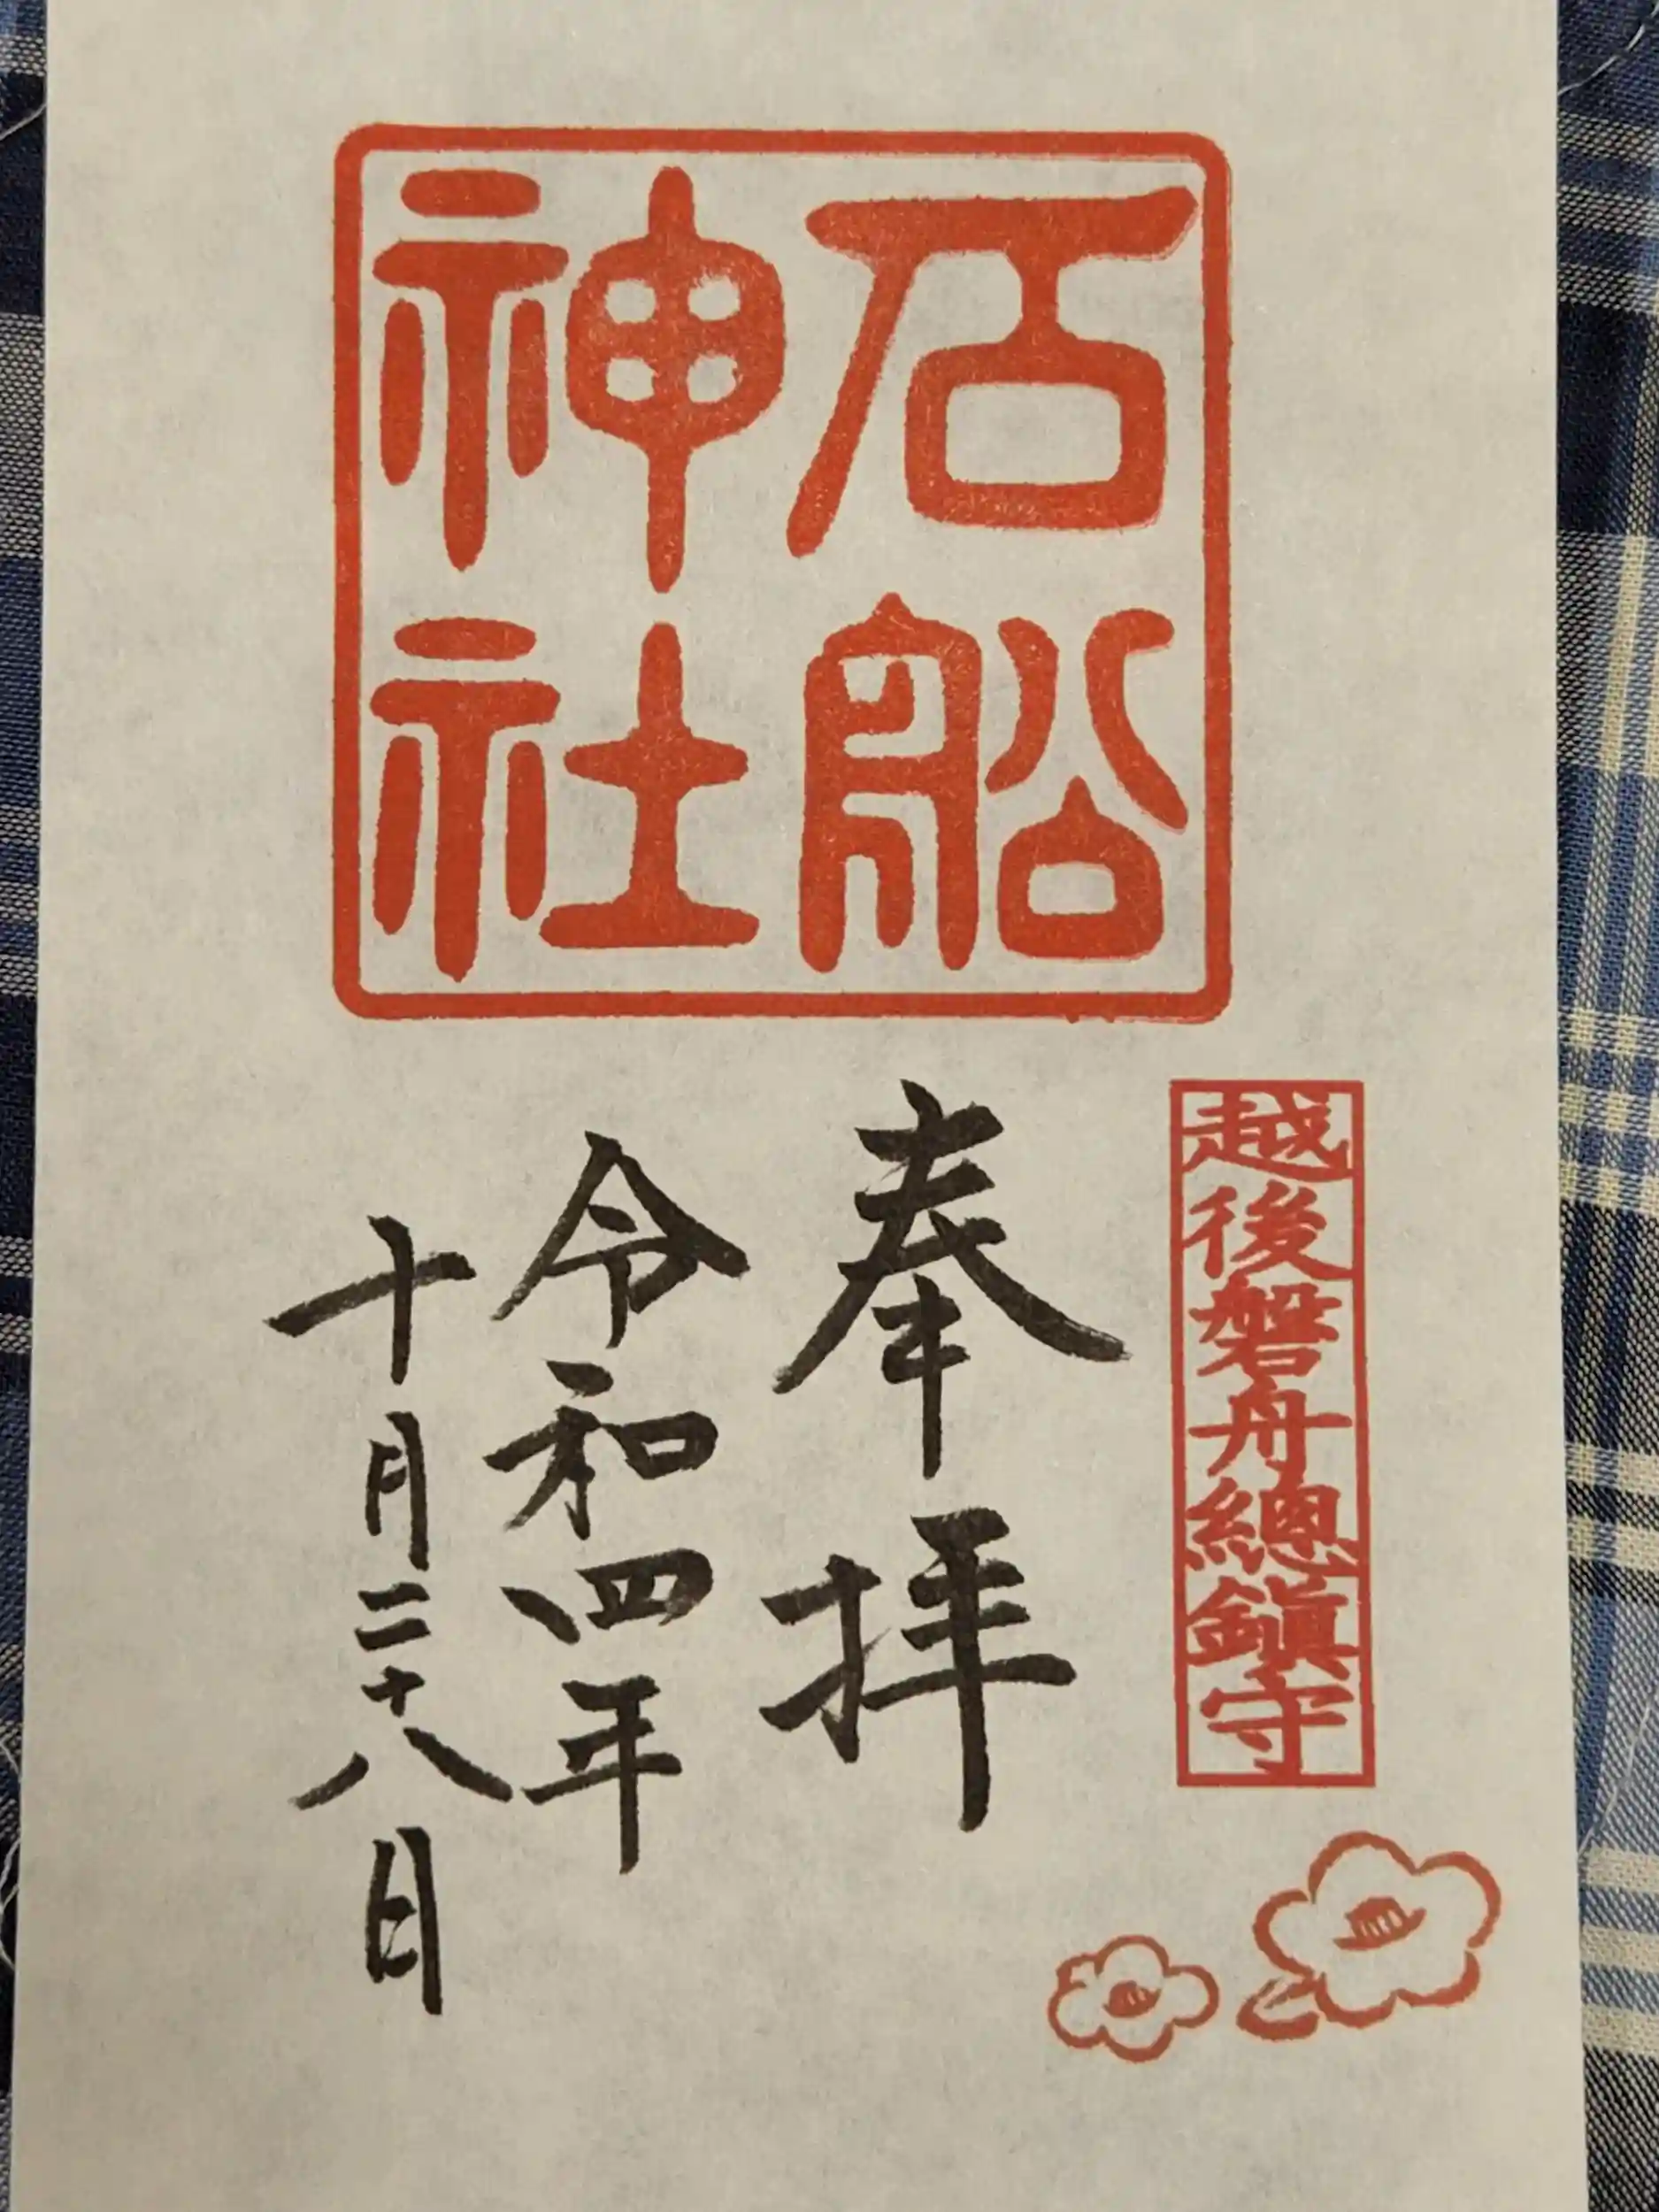 石船
神社
越後磐舟總鎮守
奉拝
令和四年
十月二十八日